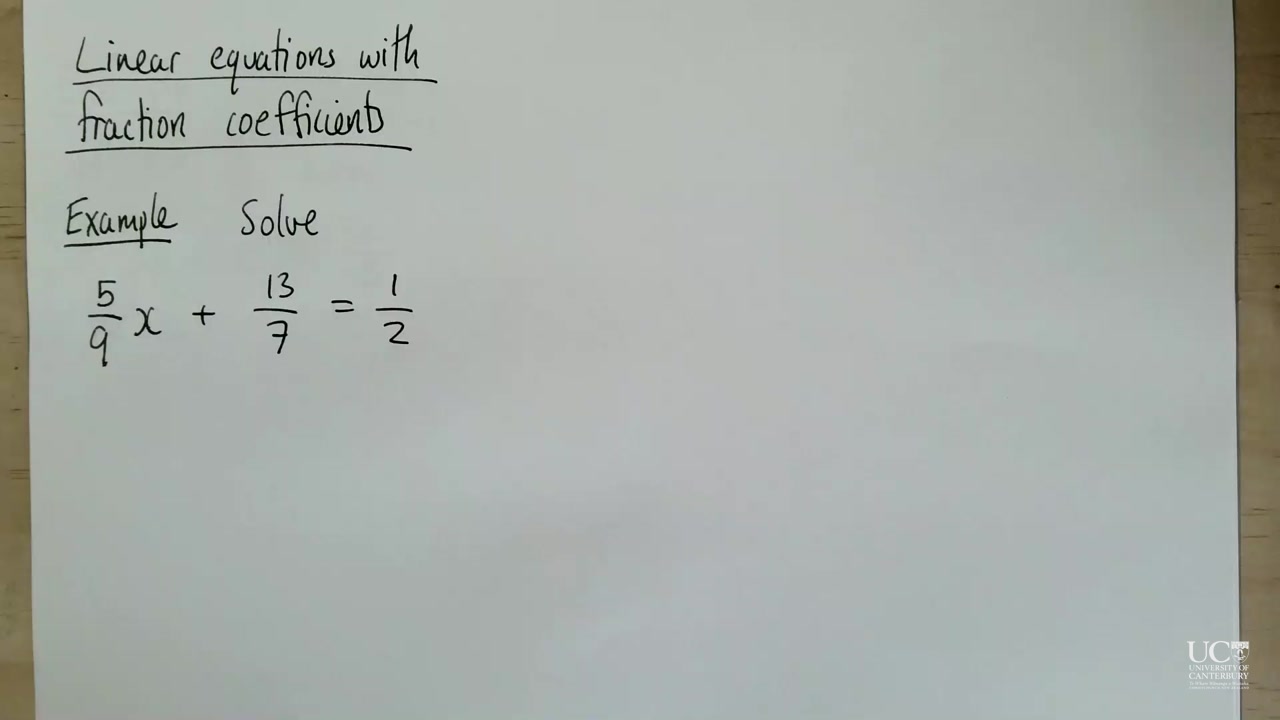 Linear equations with
fraction coefficients
Example Solve
5/9 x + 13/7 = 1/2
UC
UNIVERSITY OF
CANTERBURY